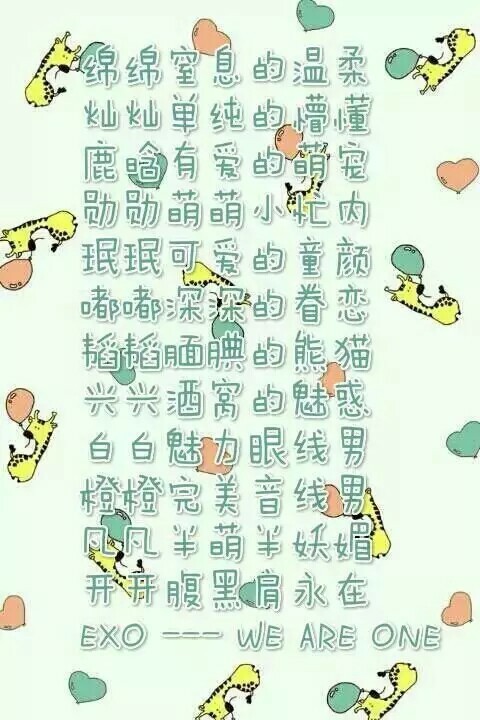 绵绵窒息的温柔
灿灿单纯的懵懂
鹿晗有爱的萌宠
勋勋萌萌小忙内
珉珉可爱的童颜
嘟嘟深深的眷恋
韬韬腼腆的熊猫
兴兴酒窝的魅惑
白白魅力眼线男
橙橙完美音线男
凡凡半萌半妖媚
开开腹黑肩永在
EXO --- WE ARE ONE